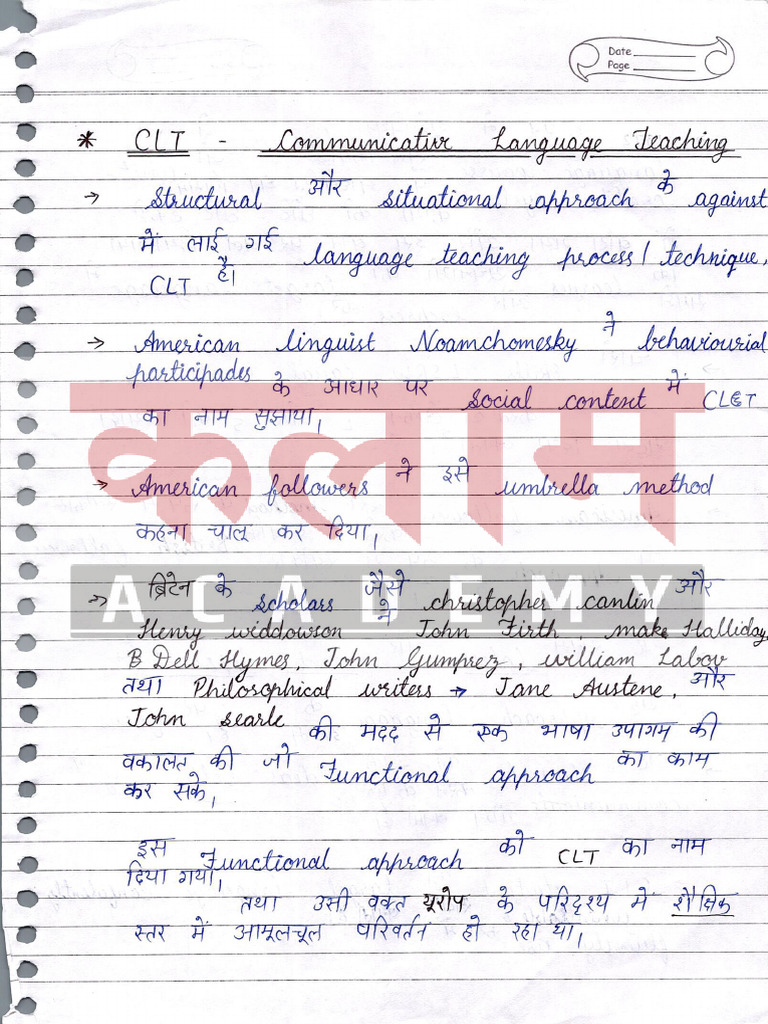 Date
Page
* CLT - Communicative Language Teaching
→ Structural और situational approach के against
में लाई गई language teaching process / technique,
CLT है।
→ American linguist Noamchomesky ने behaviourial
participades के आधार पर social content में CLT
का नाम सुझाया।
→ American followers ने इसे umbrella method
कहना चालू कर दिया।
→ ब्रिटेन के scholars जैसे christopher canlin और
Henry widdowson ने John Firth, make Halliday,
B Dell Hymes, John Gumprez, william Labov
तथा Philosophical writers → Jane Austene, और
John searle की मदद से एक भाषा उपागम की
वकालत की जो Functional approach का काम
कर सके।
इस Functional approach को CLT का नाम
दिया गया।
तथा उसी वक्त यूरोप के परिदृश्य में शैक्षिक
स्तर में आमूलचूल परिवर्तन हो रहा था।
कलाम
ACADEMY